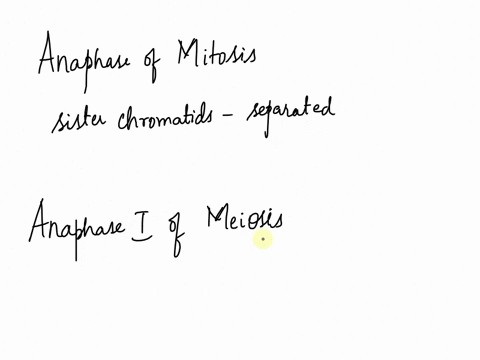 Anaphase of Mitosis
sister chromatids - separated
Anaphase I of Meiosis